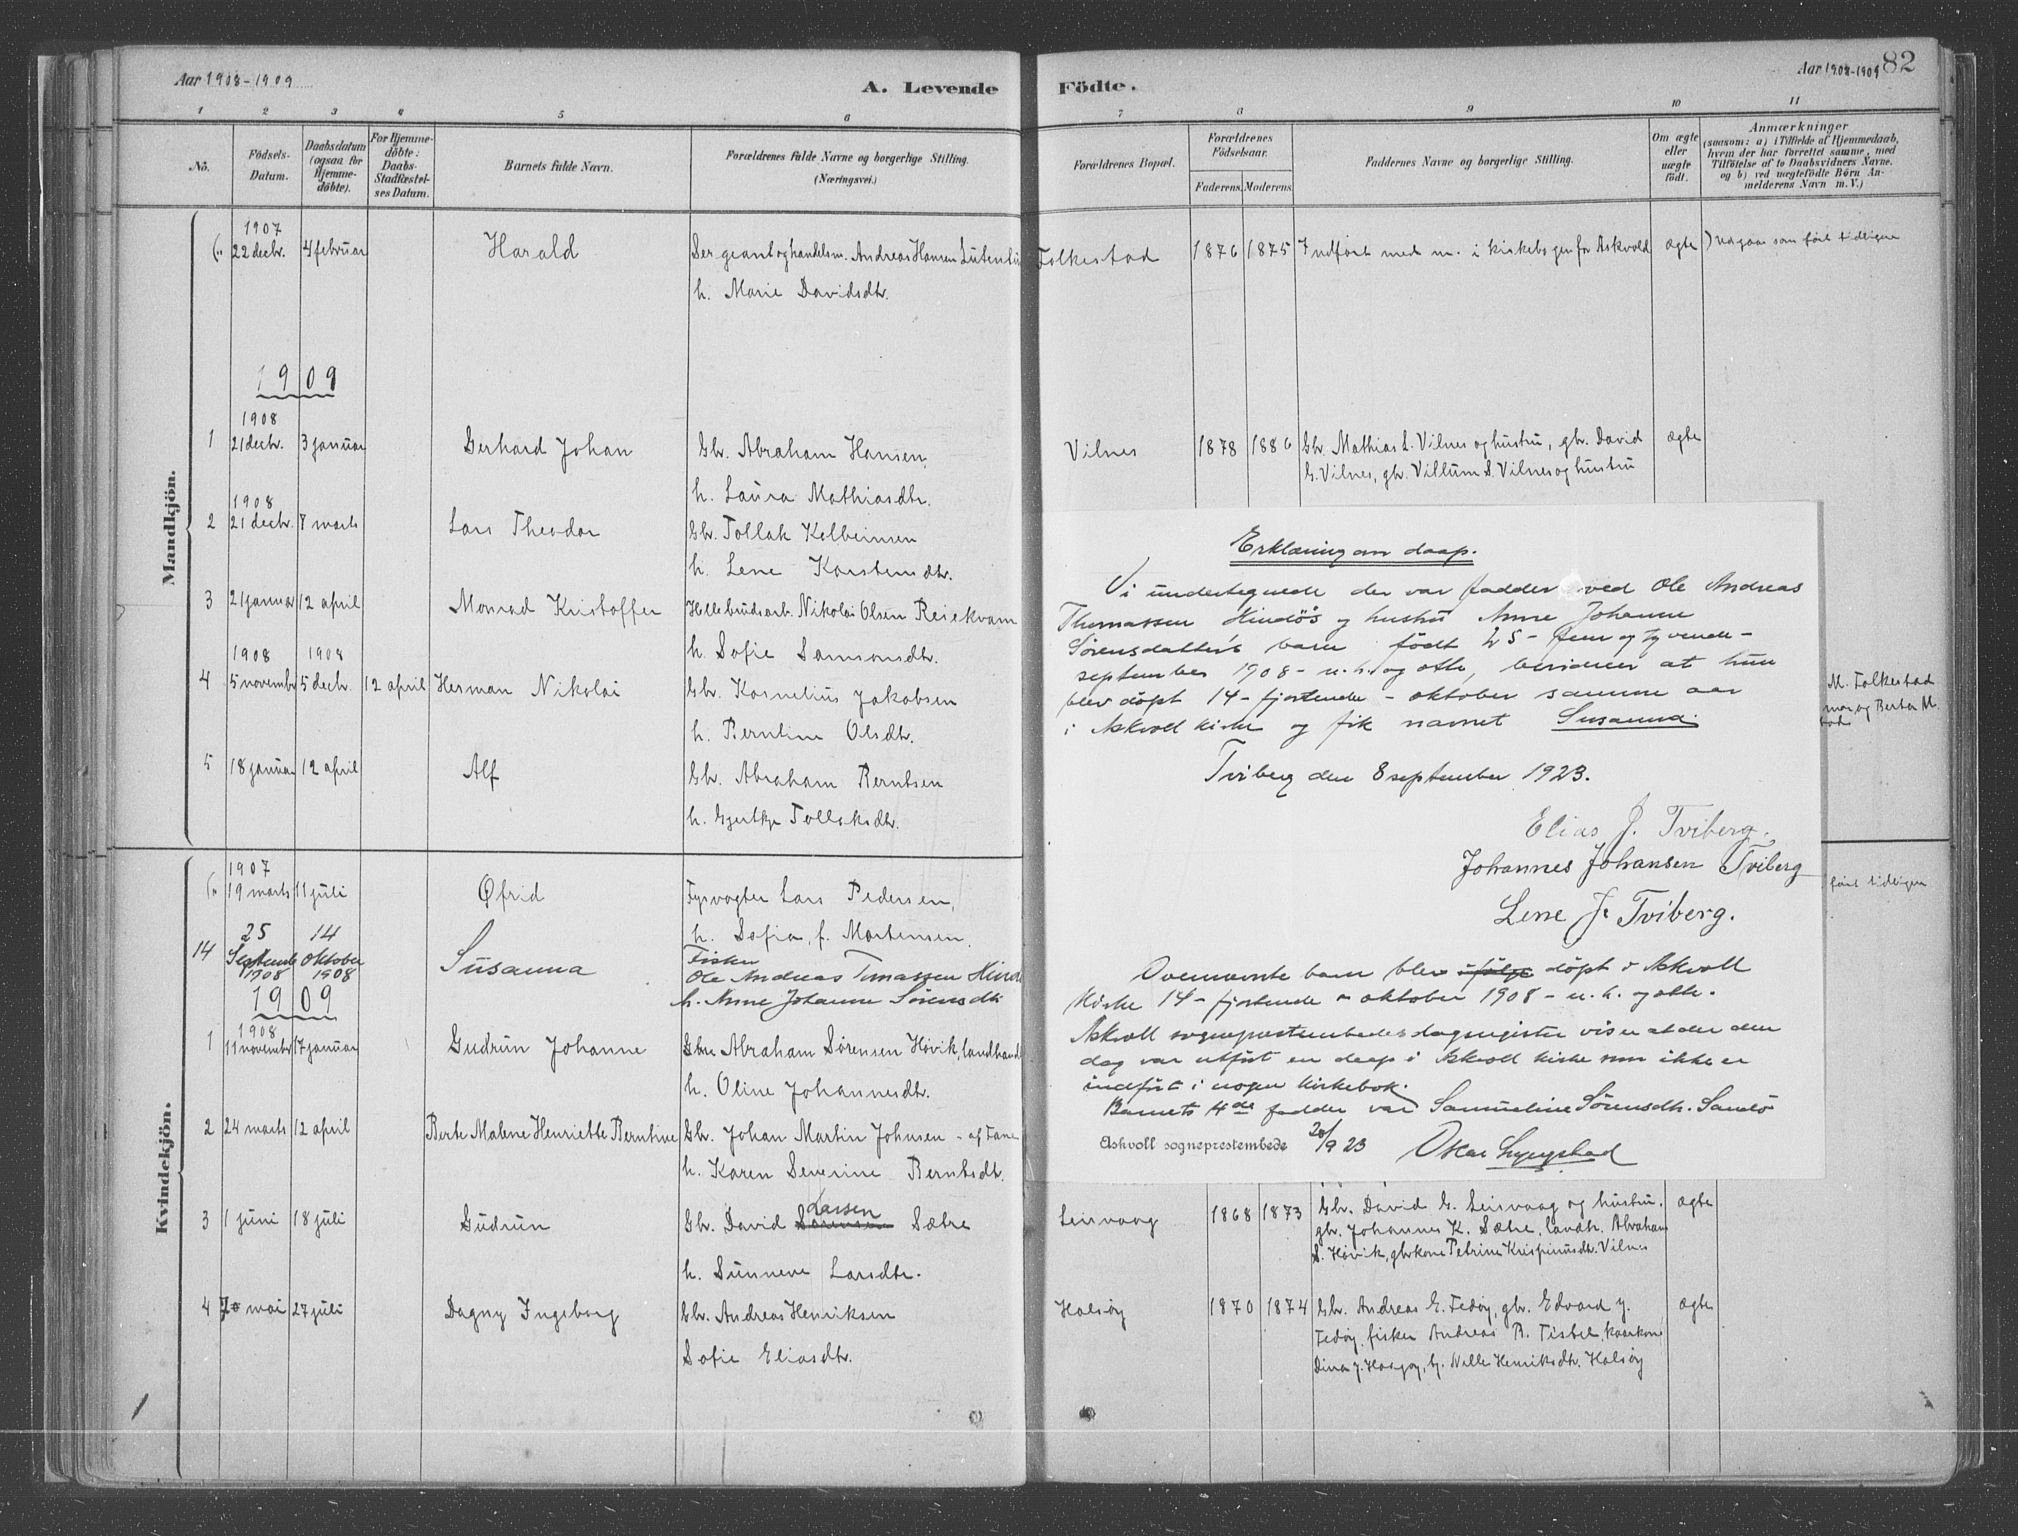 Aar 1908-1909
A. Levende
1 2 3 4 5 6
No.
Födsels-
Datum.
Daabsdatum
(ogsaa for
Hjemme-
döbte).
For Hjemme-
döbte:
Daabs-
Stadfæstel-
ses Datum.
Barnets fulde Navn.
Forældrenes fulde Navne og borgerlige Stilling.
(Næringsvei.)
Mandkjön.
1907
22 decbr. 4 februar Harald Sergeant og handelsm. Andreas Hansen
h. Marie Davidsdtr.
1909
1908
1 21 decbr. 3 januar Gerhard Johan Gbr. Abraham Hansen,
h. Laura Mathiasdtr.
1908
2 21 decbr. 7 marts Lars Theodor Gbr. Tollak Kolbeinsen
h. Lene Karstensdtr.
3 21 januar 12 april Monrad Kristoffer Hellebrudsarb. Nikolai Olsen Reiekvam
h. Sofie Samsonsdtr.
1908 1908
4 5 novembr 5 decbr. 12 april Herman Nikolai Gbr. Kornelius Jakobsen
h. Berntine Olsdtr.
5 18 januar 12 april Alf Gbr. Abraham Berntsen
h. Gjertje Tollaksdtr.
Kvindekjön.
1907
19 marts 11 juli Øfrid Fyrvogter Lars Pedersen,
h. Sofia, f. Mortensen.
14 25 September 1908 14 Oktober 1908 Susanna Fisker
Ole Andreas Tomassen
h. Anne Johanne Sørensdtr.
1909
1908
1 11 novembr 17 januar Gudrun Johanne Gbr Abraham Sørensen Høvik, landhandl
h. Oline Johannesdtr.
2 24 marts 12 april Berte Malene Henriette Berntine Gbr. Johan Martin Johnsen - af
h. Karen Severine Berntsdtr.
Larsen
3 1 juni 18 juli Gudrun Gbr. David Sørensen Sætre
h. Sunneve Larsdtr.
4 mai 27 juli Dagny Ingeborg Gbr. Andreas Henriksen
Sofie Eliasdtr.
Födte.
Aar 1908-1909 82
7 8 9 10 11
Forældrenes Bopæl.
Forældrenes
Födselsaar.
Faderens. Moderens.
Faddernes Navne og borgerlige Stilling.
Om ægte
eller
uægte
födt.
Anmærkninger
(saasom: a) i Tilfælde af Hjemmedaab,
hvem der har forrettet samme, med
Tilföielse af to Daabsvidners Navne.
og b) ved uægtefödte Börn An-
melderens Navn m. V.)
Folkestad 1876 1875 Indført med nr. i kirkebogen for Askvold ægte ) Udgaar som ført tidligere
Vilnes 1878 1886 Gbr. Mathias L. Vilnes og hustru, gbr. David
G. Vilnes, gbr. Villum S. Vilnes og hustru ægte
Erklæring om daap.
Vi undertegnede der var fadder ved Ole Andreas
Thomassen Hindøs og hustru Anne Johanne
Sørensdatters barn født 25 - fem og tyvende -
september 1908 - n. h. og otte, bevidner at hun
blev døpt 14 - fjortende - oktober samme aar
i Askvoll kirke og fik navnet Susanna.
Tviberg den 8 september 1923.
Elias J. Tviberg.
Johannes Johansen Tviberg
Lene J. Tviberg.
Ovennævnte barn blev ifølge døpt i Askvoll
kirke 14 - fjortende - oktober 1908 - n. h. og otte.
Askvoll sogneprestembedes dagregister viser at der den
dag var utført en daap i Askvoll kirke som ikke er
indført i nogen kirkebok.
Barnets 4de fadder var Samueline Sørensdtr. Sandø
Askvoll sogneprestembede 20/9 23 Oskar Lyngstad
M. Folkestad
og Berta M.
ført tidligere
Leirvaag 1868 1873 Gbr. David G. Leirvaag og hustru,
gbr. Johannes K. Sætre, landh. Abraham
S. Høvik, gbrkone Petrine Krispinusdtr. Vilnes ægte
Halsøy 1870 1874 Gbr. Andreas E. Fedøy, gbr. Edvard J.
Fedøy, fisker Andreas B. Tistel,
Dina J. Nelle Henriksdtr. Halsøy ægte